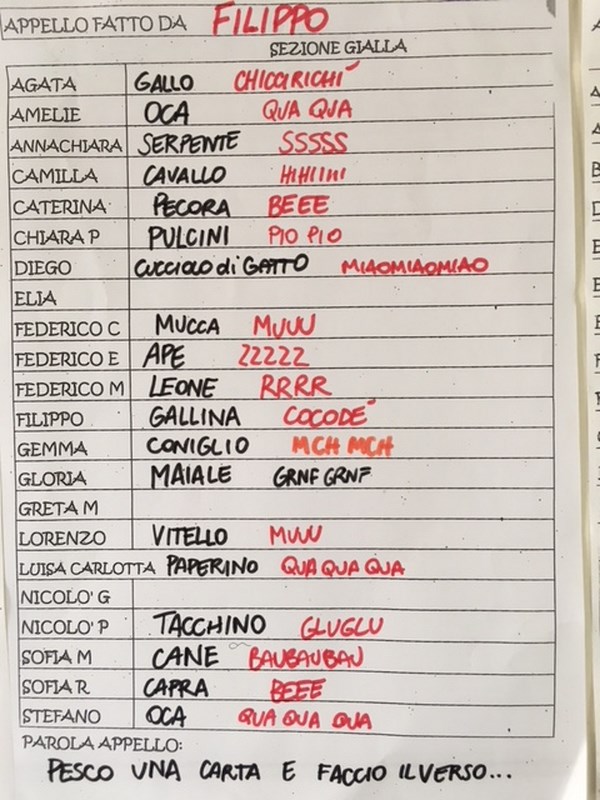 APPELLO FATTO DA FILIPPO
SEZIONE GIALLA
AGATA GALLO CHICCIRICHÍ
AMELIE OCA QUA QUA
ANNACHIARA SERPENTE SSSSS
CAMILLA CAVALLO HIHIIHI
CATERINA PECORA BEEE
CHIARA P PULCINI PIO PIO
DIEGO CUCCIOLO di GATTO MIAOMIAOMIAO
ELIA
FEDERICO C MUCCA MUUU
FEDERICO E APE ZZZZZ
FEDERICO M LEONE RRRR
FILIPPO GALLINA COCODÉ
GEMMA CONIGLIO MCH MCH
GLORIA MAIALE GRNF GRNF
GRETA M
LORENZO VITELLO MUUU
LUISA CARLOTTA PAPERINO QUA QUA QUA
NICOLO' G
NICOLO' P TACCHINO GLUGLU
SOFIA M CANE BAUBAUBAU
SOFIA R CAPRA BEEE
STEFANO OCA QUA QUA QUA
PAROLA APPELLO:
PESCO UNA CARTA E FACCIO IL VERSO...